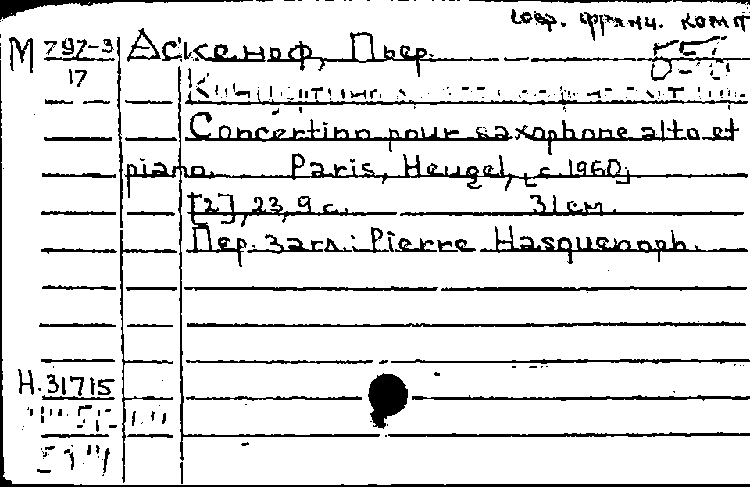 совр. франц. комп
М 292-3 Аскеноф, Пьер.
17
Concertino pour saxophone alto et
piano. Paris, Heugel, [c. 1960]
[2], 23, 9 с. 31 см.
Пер. загл.: Pierre Hasquenoph.
Н. 31715